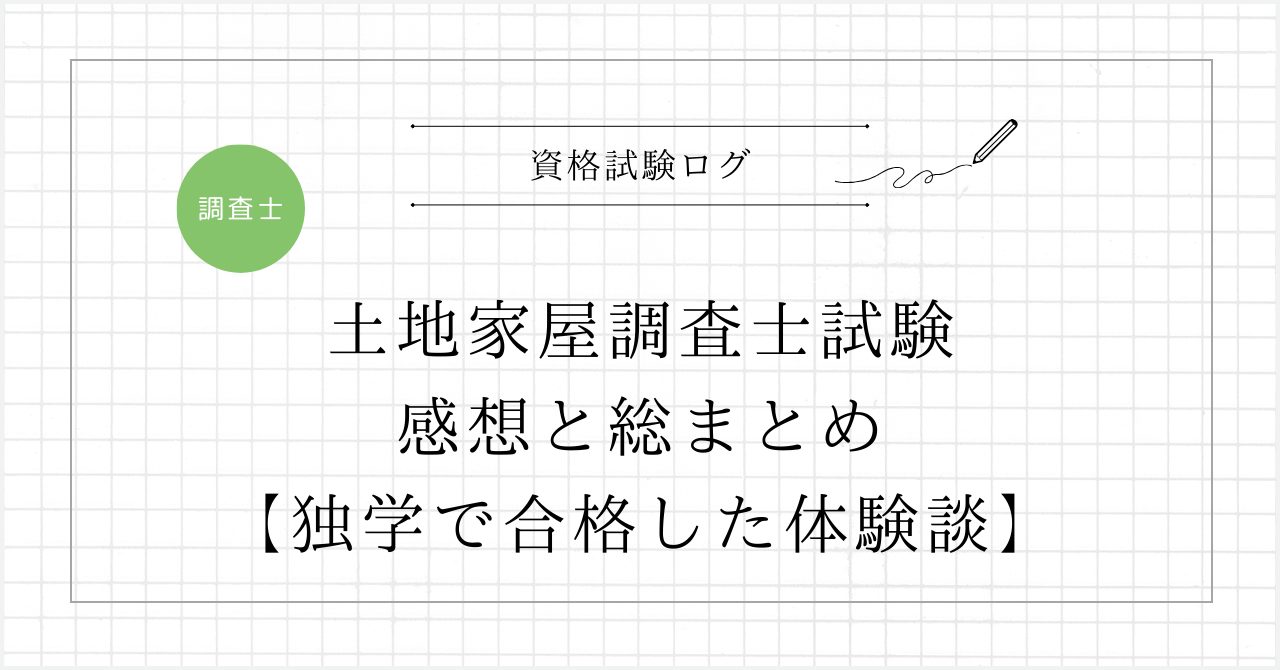 資格試験ログ
調査士
土地家屋調査士試験
感想と総まとめ
【独学で合格した体験談】